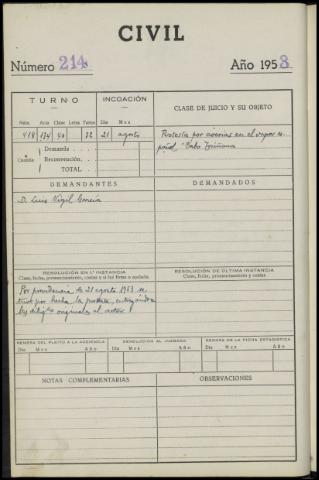 CIVIL
Número 214 Año 1953.
TURNO INCOACIÓN CLASE DE JUICIO Y SU OBJETO
Núm. Año Letra Turno Día Mes
21 agosto Protesta por averías en el vapor es-
Demanda pañol "Cabo
Cuantía Reconvención.
TOTAL
DEMANDANTES DEMANDADOS
D. Luis Vigil García
RESOLUCIÓN EN 1.ª INSTANCIA RESOLUCIÓN DE ÚLTIMA INSTANCIA
Clase, fecha, pronunciamiento, costas y si fué firme o apelada. Clase, fecha, pronunciamiento y costas
Por providencia de 21 agosto 1953 se
tuvo por hecha la protesta, entregándose
las dilig.s originales al actor.
REMESA DEL PLEITO A LA AUDIENCIA DEVOLUCIÓN AL JUZGADO REMESA DE LA FICHA ESTADÍSTICA
Día Mes Año Día Mes Año Día Mes Año
NOTAS COMPLEMENTARIAS OBSERVACIONES